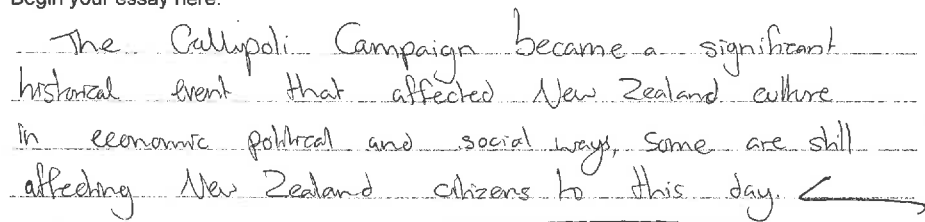 Begin your essay here:
The Callypoli Campaign became a significant
historical event that affected New Zealand culture
in economic political and social ways, some are still
affecting New Zealand citizens to this day.